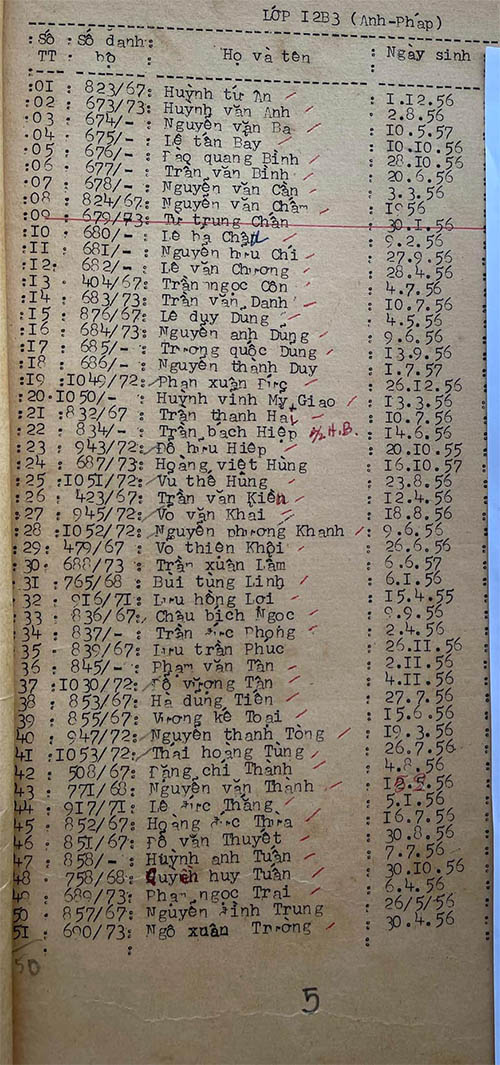 LỚP I2B3 (Anh-Pháp)
:Số : Số danh: Họ và tên : Ngày sinh
TT : bộ : :
:01 : 823/67: Huỳnh từ An : I.I2.56
:02 : 673/73: Huỳnh văn Anh : 2.8.56
:03 : 674/- : Nguyễn văn Ba : I0.5.57
:04 : 675/- : Lê tấn Bay : I0.I0.56
:05 : 676/- : Đào quang Bình : 28.I0.56
:06 : 677/- : Trần văn Bình : 20.6.56
:07 : 678/- : Nguyễn văn Cần : 3.3.56
:08 : 824/67: Nguyễn văn Chẩm : I956
:09 : 679/73: Từ trung Chấn : 30.I.56
:I0 : 680/- : Lê bá Châu : 9.2.56
:II : 681/- : Nguyễn hưu Chí : 27.9.56
:I2: 682/- : Lê văn Chương : 28.4.56
:I3 : 404/67: Trần ngọc Côn : 4.7.56
:I4 : 683/73: Trần văn Danh : I0.7.56
:I5 : 876/67: Lê duy Dũng : 4.5.56
:I6 : 684/73: Nguyễn anh Dũng : 9.6.56
:I7 : 685/- : Trương quốc Dũng : I3.9.56
:I8 : 686/- : Nguyễn thanh Duy : I.7.57
:I9 :I049/72: Phan xuân Đức : 26.I2.56
:20.I050/- : Huỳnh vinh Mỹ Giao : I3.3.56
:2I : 832/67 : Trần thanh Hai : I0.7.56
:22 : 834/- : Trần bạch Hiệp H.B. : I4.6.56
:23 : 943/72: Đỗ hưu Hiệp : 20.I0.55
:24 : 687/73: Hoàng việt Hùng : I6.I0.57
:25 :I05I/72: Vu thế Hùng : 23.8.56
:26 : 423/67: Trần văn Kiên : I2.4.56
:27 : 945/72: Vo văn Khai : I8.8.56
:28 :I052/72: Nguyễn phương Khanh : 9.6.56
:29: 479/67 : Vo thiện Khôi : 26.6.56
:30 : 688/73 : Trần xuân Lâm : 6.6.57
:3I : 765/68 : Bùi tùng Linh : 6.I.56
:32 : 9I6/7I: Lưu hồng Lợi : I5.4.55
:33 : 836/67: Châu bích Ngọc : 9.9.56
:34 : 837/- : Trần đức Phong : 2.4.56
35 : 839/67: Lưu trần Phuc : 26.II.56
36 : 845/- : Phạm văn Tân : 2.II.56
37 :I030/72: Đỗ vương Tân : 4.II.56
38 : 853/67: Hà dũng Tiến : 27.7.56
39 : 855/67: Vương kế Toại : I5.6.56
40 : 947/72: Nguyễn thanh Tòng : I9.3.56
4I :I053/72: Thái hoàng Tùng : 26.7.56
42 : 508/67: Đặng chí Thành : 4.8.56
43 : 77I/68: Nguyễn văn Thạnh : I2.5.56
44 : 9I7/7I: Lê đức Thắng : 5.I.56
45 : 852/67: Hoàng đức Thưa : I6.7.56
46 : 85I/67: Đỗ văn Thuyết : 30.8.56
47 : 858/- : Huỳnh anh Tuấn : 7.7.56
48 : 758/68: Quyền huy Tuấn : 30.I0.56
49 : 689/73: Phạm ngọc Trai : 6.4.56
50 : 857/67: Nguyễn đình Trung : 26/5/56
5I : 690/73: Ngô xuân Trương : 30.4.56
50
5